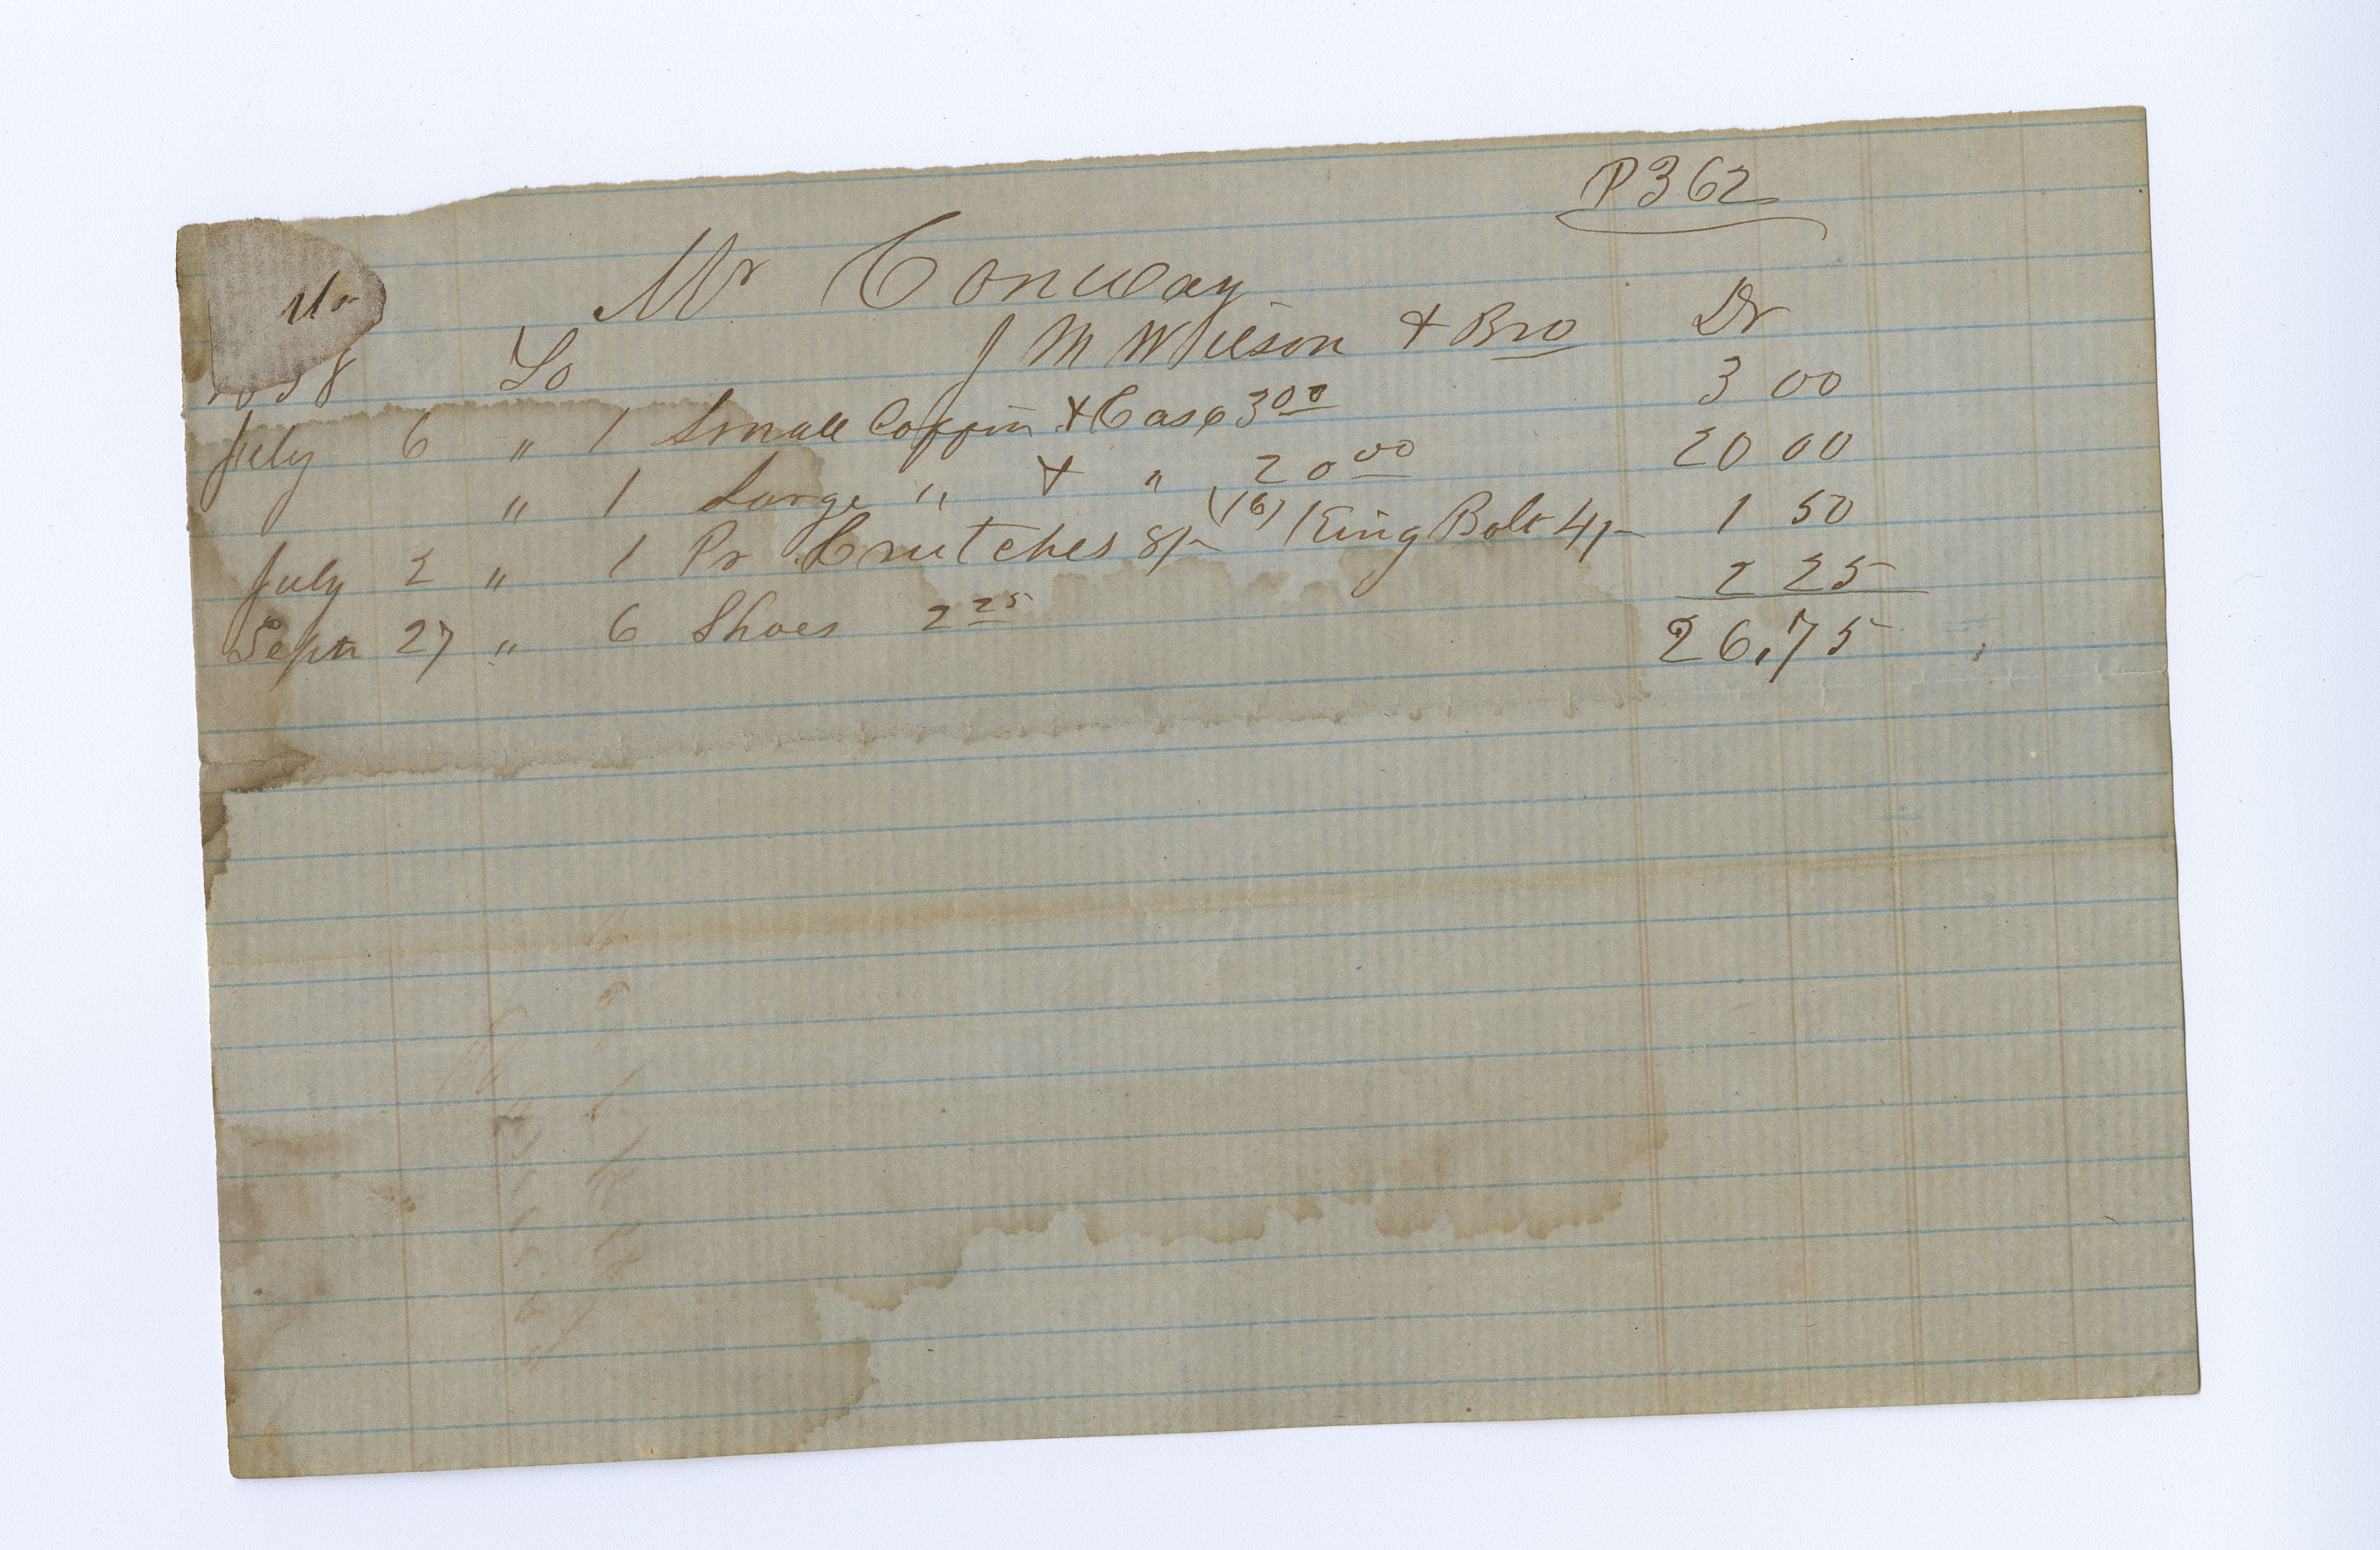 P 362
Mr Conway
Mr
1858 To J M Wilson & Bro Dr
July 6 " 1 Small Coffin & Case 3 00 3 00
" 1 Large " & " 20 00 20 00
July 2 " 1 Pr Crutches 8/- (16) King Bolt 4/- 1 50
Sept 27 " 6 Shoes 2 25 2 25
26,75